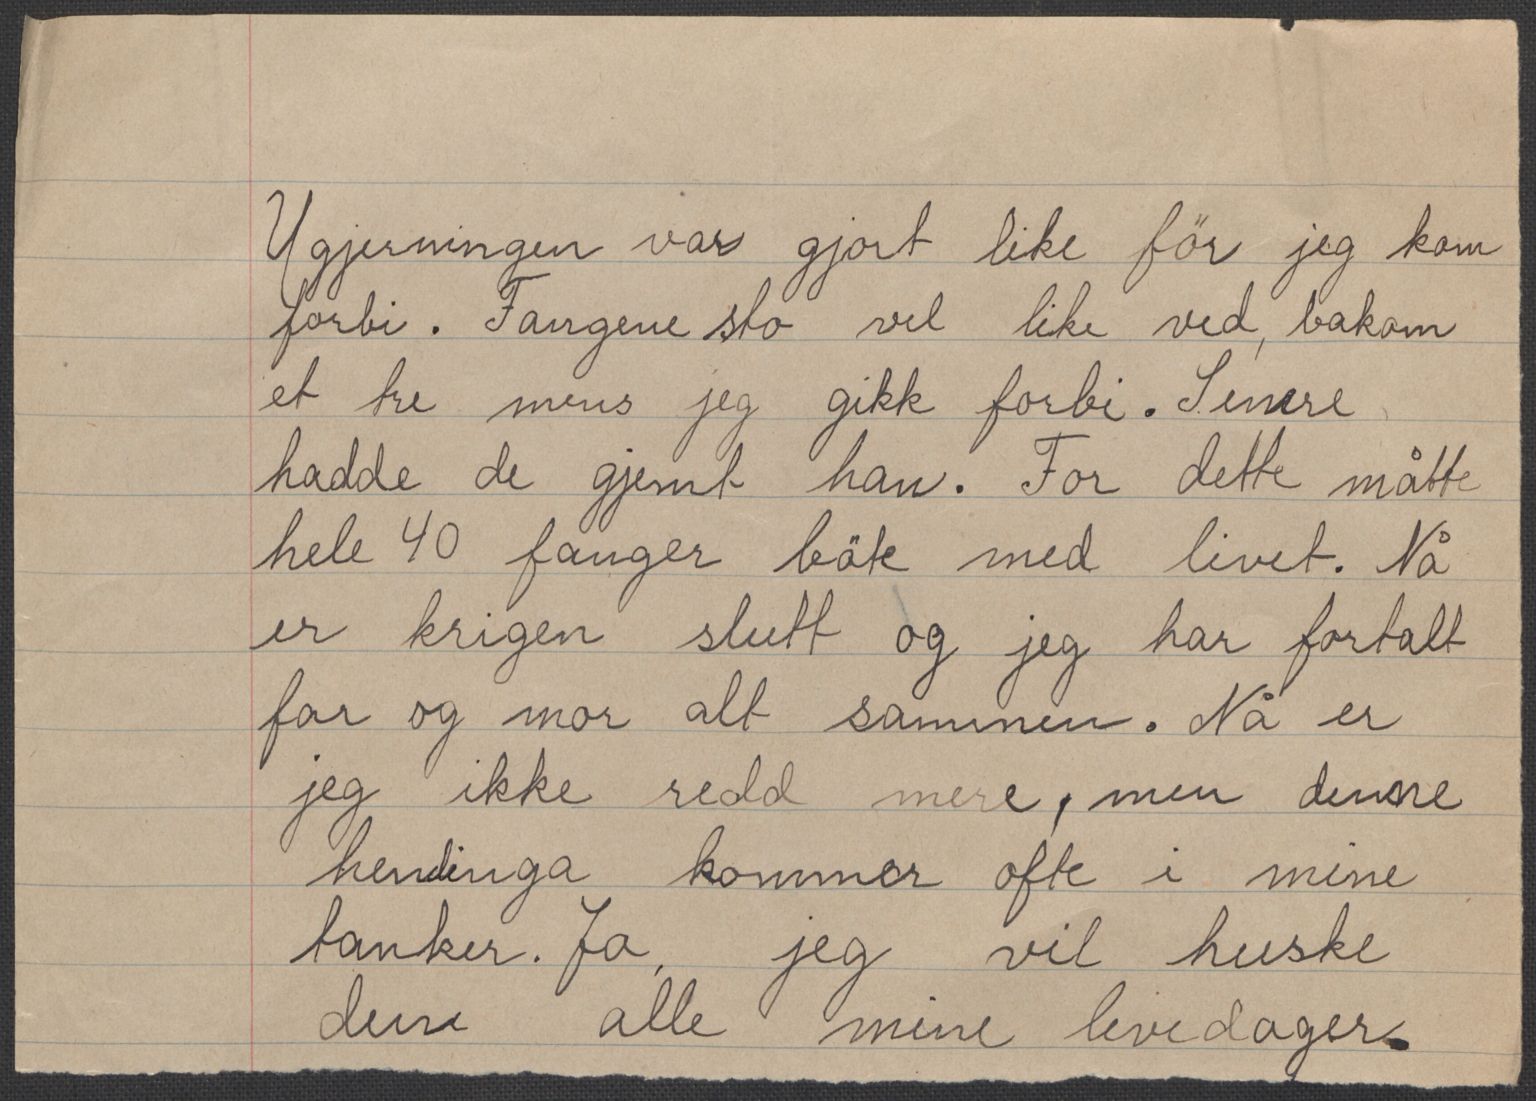 Ugjerningen var gjort like før jeg kom
forbi. Fangene sto vel like ved, bakom
et tre mens jeg gikk forbi. Senere
hadde de gjemt han. For dette måtte
hele 40 fanger böte med livet. Nå
er krigen slutt og jeg har fortalt
far og mor alt sammen. Nå er
jeg ikke redd mere, men denne
hendinga kommer ofte i mine
tanker. Ja, jeg vil huske
den alle mine livedager.